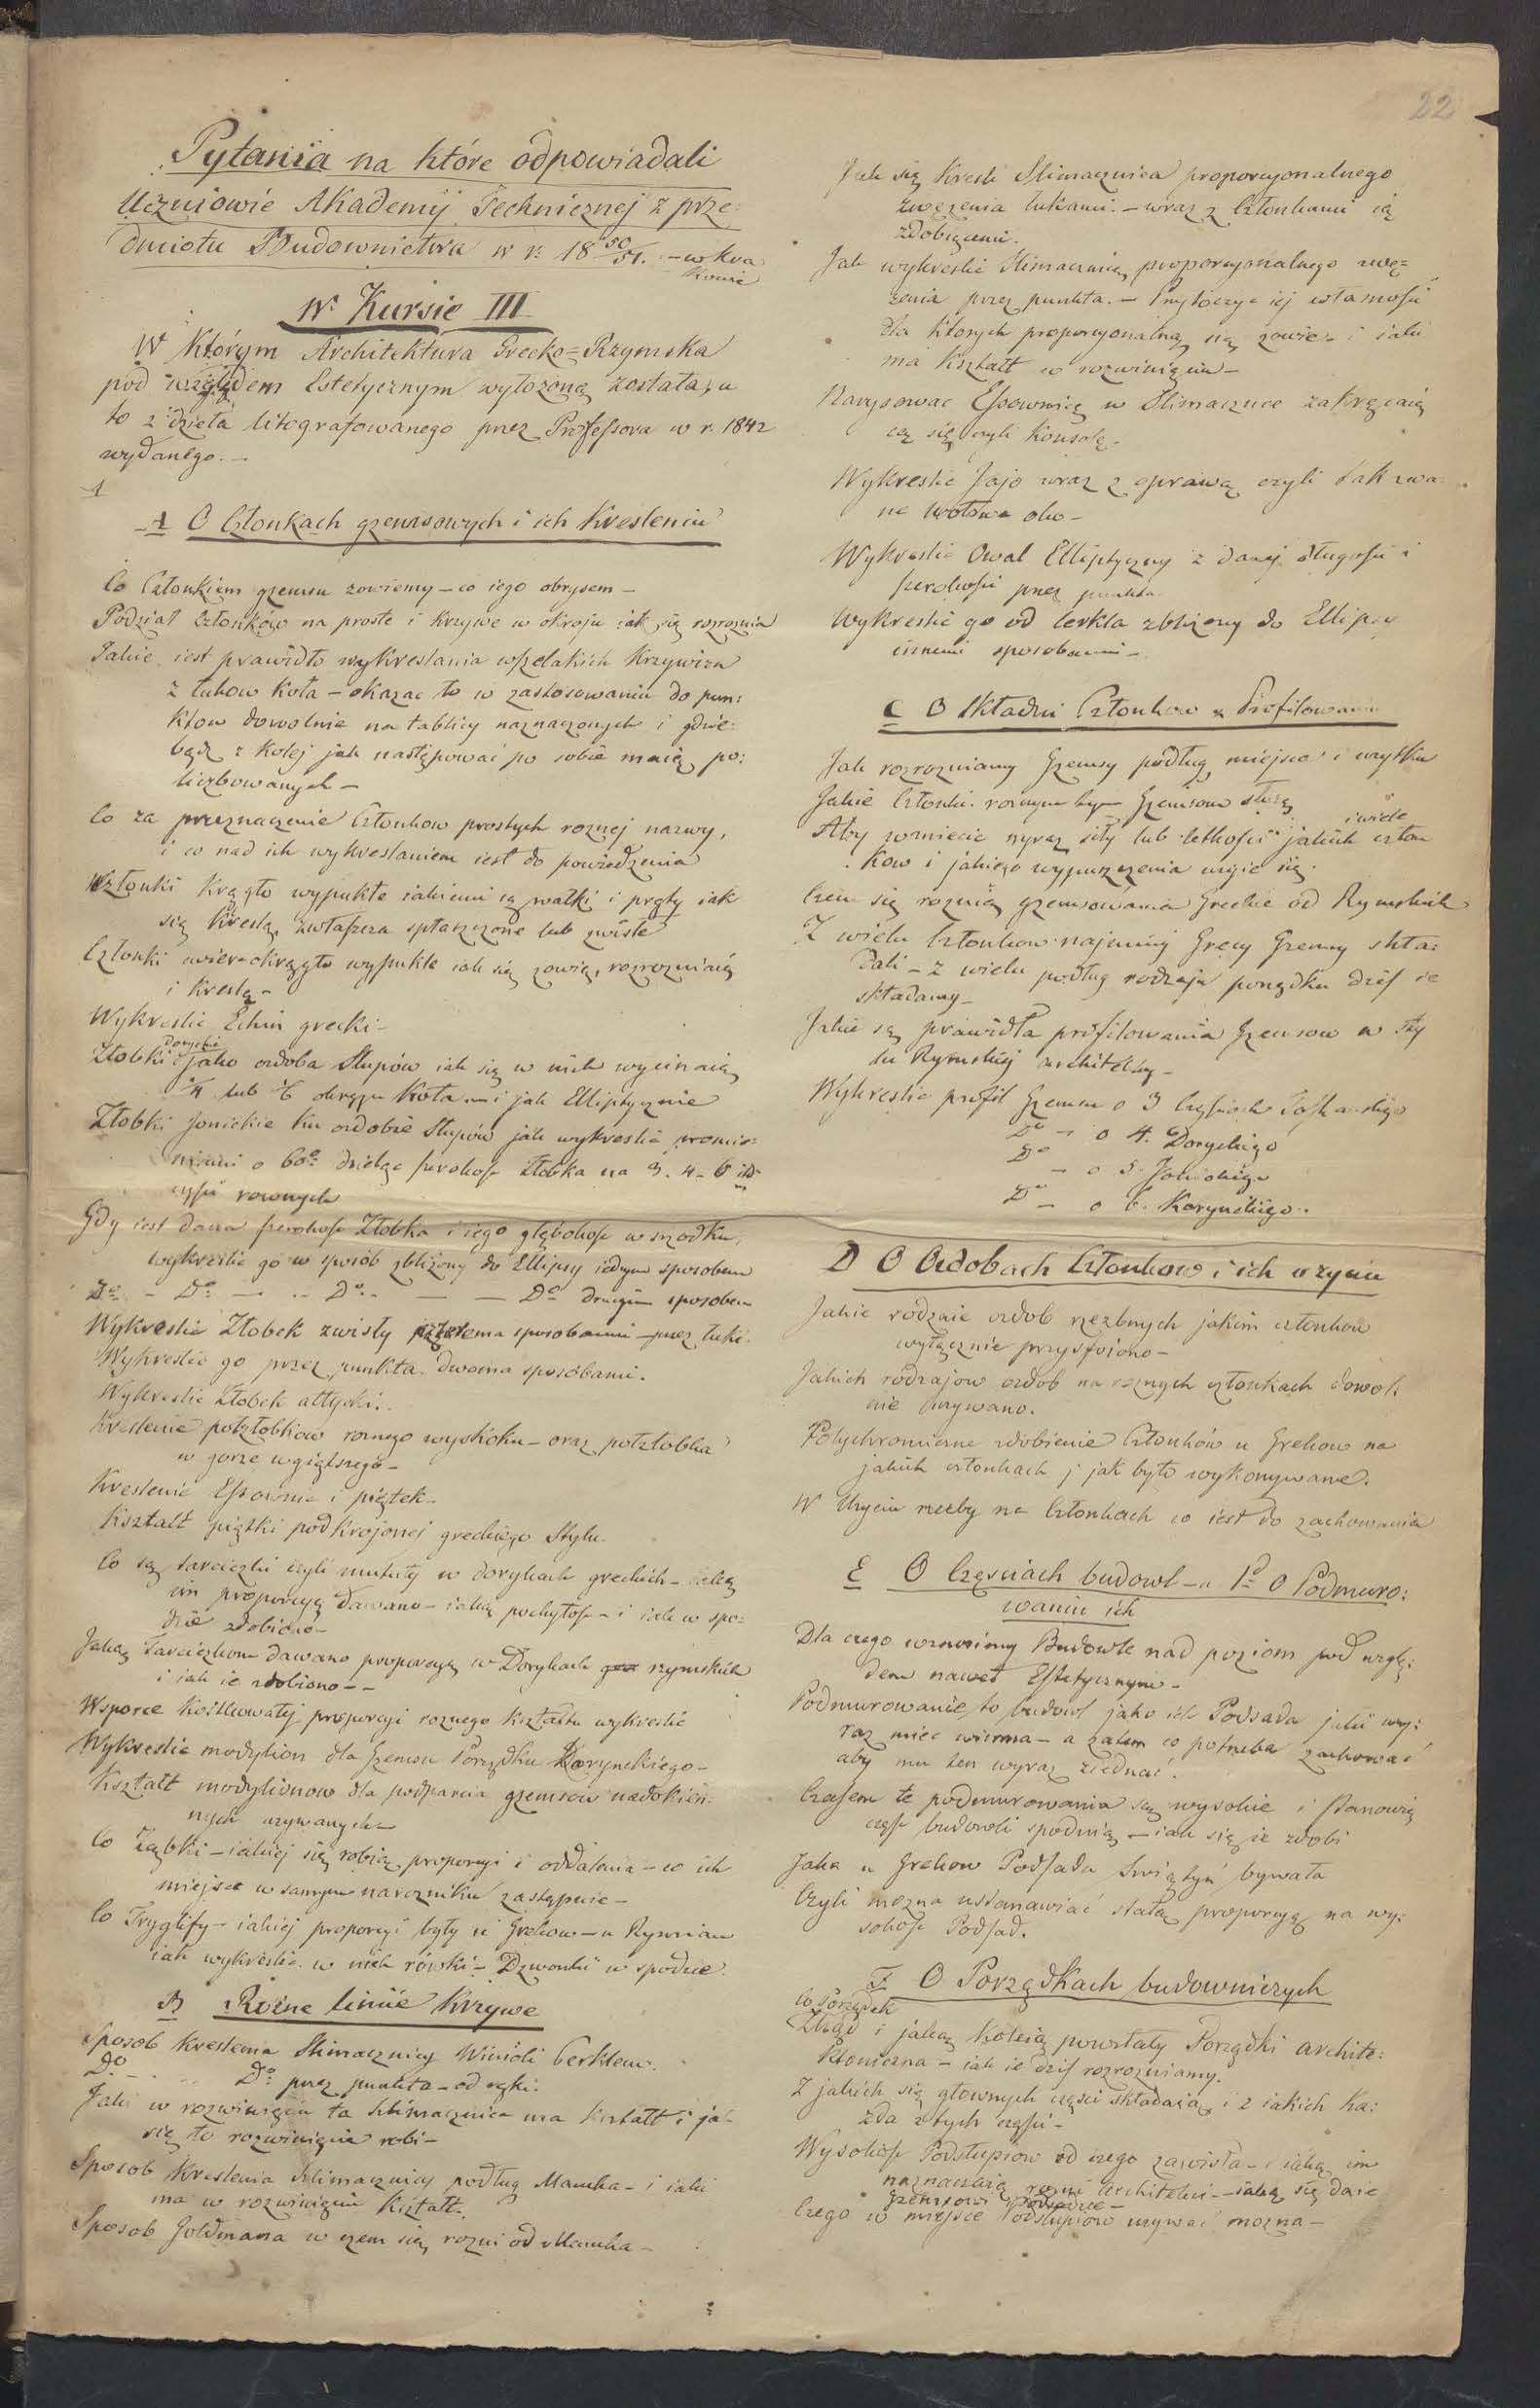 22
Pytania na które odpowiadali
Uczniowie Akademij Technicznej z prze:
dmiotu Budownictwa w r: 18 50/51. – w Kra
kowie
w Kursie III
W Którym Architektura Grecko=Rzymska
pod względem Estetycznym wyłożoną została, a
to z dzieła litografowanego przez Professora w r. 1842
wydanego. –
1
A O Członkach gzemsowych i ich Kresleniu
Co Członkiem gzemsu zowiemy – co iego obrysem –
Podział Członków na proste i Krzywe w okroju iak się rozroznia
Jakie iest prawidło wykreslania wszelakich Krzywizn
z łukow Koła – okazac to w zastosowaniu do pun:
ktow dowolnie na tablicy naznaczonych i gdzie:
bądz z Kolej jak następować po sobie maią po:
liczbowanych –
Co za przeznaczenie Członkow prostych roznej nazwy,
i co nad ich wykreslaniem iest do powiedzenia
Członki Krągło wypukłe iakiemi są wałki i pręty iak
się Kreslą, zwłaszcza spłaszczone lub zwisłe
Członki cwierc-okrągło wypukłe iak się zowią, rozrozniaią
i Kreslą –
Wykreslic Echin grecki –
Doryckie
Złobki jako ozdoba Słupów iak się w nich wycinaią
1/4 lub 1/6 okręgu Koła – i jak Elliptycznie
Złobki Jonickie ku ozdobie Słupów jak wykreslic promie:
niami o 60° dzieląc szerokosc złobka na 3. 4. 6
częsci rownych
Gdy iest dana szerokosc Złobka i iego głębokosc w srzodku,
wykreslic go w sposób zbliżony do Ellipsy iednym sposobem
Do – Do – – Do – – Do drugim sposobem
Wykreslic Złobek zwisły sposobami – przez łuki.
Wykreslic go przez punkta dwoma sposobami.
Wykreslic Złobek attycki.
Kreslenie połzłobkow roznego wyskoku – oraz połzłobka
w gorze wgiętszego –
Kreslenie Essownic i piętek –
Kształt piętki podkrojonej greckiego Stylu.
Co są tarciczki czyli mutuły w dorykach greckich – iaką
im proporcyą dawano – iaką pochyłosc – i iak w spo:
dzie zdobiono –
Jaką Tarciczkom dawano proporcyą w Dorykach rzymskich
i iak ie zdobiono – –
Wsporce Kostkowatej proporcyi roznego Kształtu wykreslic
Wykreslic modylion dla Gzemsu Porządku Korynckiego –
Kształt modylionow dla podparcia gzemsow nadokien:
nych uzywanych –
Co Ząbki – iakiej się robią proporcyi i oddalenia – co ich
miejsce w samym narozniku zastępuie –
Co Tryglify – iakiej proporcyi były u Grekow – u Rzymian
iak wykreslic w nich rówki – Dzwonki w spodzie.
B Rożne linie Krzywe
Sposob Kreslenia Slimacznicy Winioli Cerklem.
Do – Do przez punkta – od ręki.
Jaki w rozwinięciu ta Slimacznica ma kształt i jak
się to rozwinięcie robi –
Sposob Kreslenia Slimacznicy podług Maucha – i iaki
ma w rozwinięciu Kształt.
Sposob Goldmana w czem się rozni od Maucha –
Jak się Kresli Slimacznica proporcyonalnego
zwęzenia łukami. – wraz z Członkami ią
zdobiącemi.
Jak wykreslic Slimacznicę proporcyonalnego zwę=
zenia przez punkta. – Przytoczyc iej własnosci
dla ktorych proporcyonalną się zowie – i iaki
ma Kształt w rozwinięciu –
Narysowac Essownicę w Slimacznice zakręcaią
cą się czyli Konsolę –
Wykreslic Jajo wraz z oprawą czyli tak zwa
ne wołowe oko –
Wykreslic Owal Elliptyczny z danej długosci i
szerokosci przez punkta.
Wykreslic go od Cerkla zblizony do Ellipsy
innemi sposobami –
C O Składni Członkow i Profilowaniu
Jak rozrozniamy Gzemsy podług miejsca i uzytku
Jakie Członki roznym tym Gzemsom służą
Aby wzniecic wyraz siły lub lekkosci jakich i wiele człon
kow i jakiego wypuszczenia uzyie się.
Czem się roznią gzemsowania Greckie od Rzymskich
Z wielu Członkow najmniej Grecy Gzemsy skła:
dali – z wielu podług rodzaju porządku dzis ie
składamy –
Jakie są prawidła profilowania Gzemsow w sty
lu Rzymskiej architektury –
Wykreslic profil Gzemsu o 3 Częsciach Toskańskiego
Do – o 4. Doryckiego
Do – o 5. Jonickiego
Do – o 6. Korynckiego.
D O Ozdobach Członkow i ich uzyciu
Jakie rodzaie ozdob rzezbnych jakim członkow
wyłącznie przyswoiono –
Jakich rodzajow ozdob na roznych członkach dowol:
nie uzywano.
Polychromiczne zdobienie Członków u Grekow na
jakich członkach i jak było wykonywane.
W Uzyciu rzezby na Członkach co iest do zachowania
E O Częsciach budowl – a 1o O Podmuro:
waniu ich
Dla czego wznosimy Budowle nad poziom pod wzglę:
dem nawet Estetycznym –
Podmurowanie to budowl jako ich Podsada jaki wy:
raz miec winna – a zatem co potrzeba zachować
aby mu ten wyraz ziednać.
Czasem te podmurowania są wysokie i stanowią
częsc budowli spodnią – iak się ie zdobi
Jaka u Grekow Podsada Swiątyń bywała
Czyli mozna ustanawiać stałą proporcyą na wy:
sokosc Podsad.
F O Porządkach budowniczych
Co Porządek
Zkąd i jaką Koleią powstały Porządki archite:
ktoniczne – iak ie dzis rozrozniamy.
Z jakich się głownych częsci składaią i z iakich ka:
zda z tych częsci –
Wysokosc Podsłupiow od czego zawisła – i iaką im
naznaczaią rozni Architekci – iaką się daie
gzemsowi Podsadce –
Czego w miejsce Podsłupiow uzywać mozna –